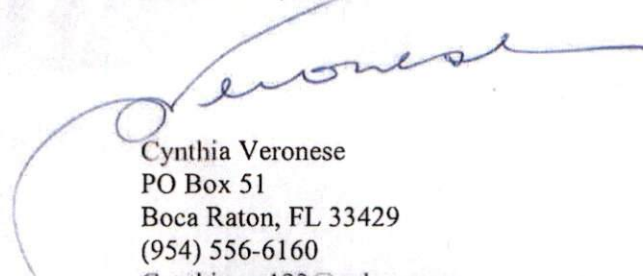 Veronese
Cynthia Veronese
PO Box 51
Boca Raton, FL 33429
(954) 556-6160